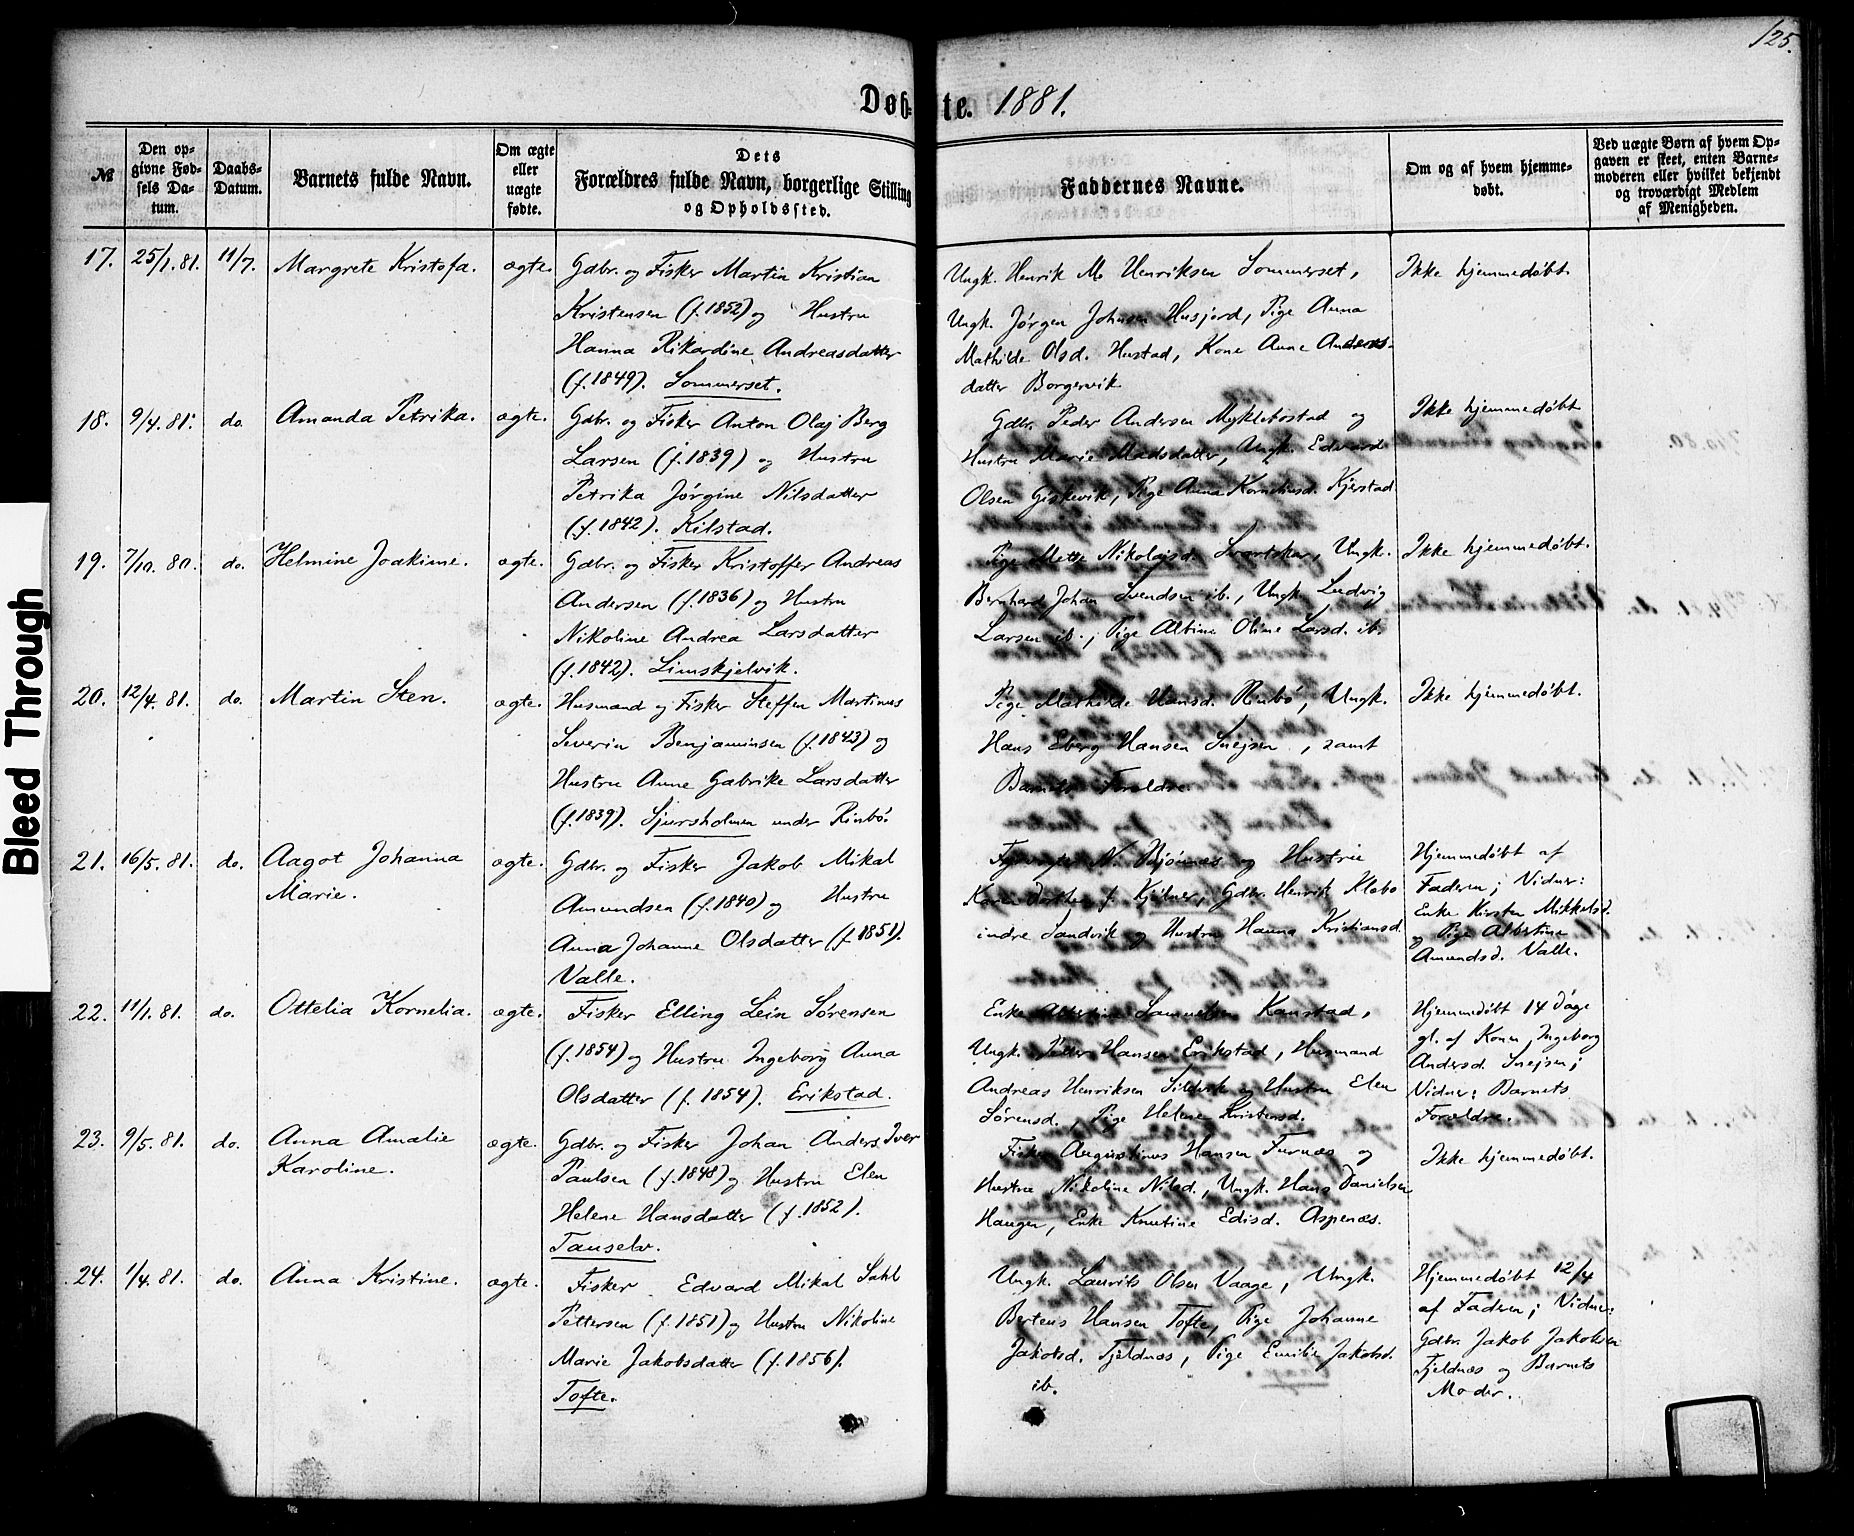 125.
Døb- te. 1881.
№
Den op-
givne Fød-
sels Da-
tum.
Daabs-
Datum.
Barnets fulde Navn.
Om ægte
eller
uægte
fødte.
Dets
Forældres fulde Navn, borgerlige Stilling
og Opholdssted.
Faddernes Navne.
Om og af hvem hjemme-
døbt.
Ved uægte Børn af hvem Op-
gaven er skeet, enten Barne-
moderen eller hvilket bekjendt
og troværdigt Medlem
af Menigheden.
17. 25/1.81. 11/7 Margrete Kristofa. ægte.
Gdbr. og Fisker Martin Kristian
Kristensen (f.1852) og Hustru
Hanna Rikardine Andreasdatter
(f.1849). Sommerset.
Ungk. Henrik M. Henriksen Sommerset,
Ungk. Jørgen Johnsen Husjord, Pige Anna
Mathilde Olsd. Hustad, Kone Anne Anders-
datter Borgervik
Ikke hjemmedøbt.
18. 9/4.81. do. Amanda Petrika. ægte.
Gdbr. og Fisker Anton Olaj Berg
Larsen (f.1839) og Hustru
Petrika Jørgine Nilsdatter
(f.1842). Kilstad.
Gdbr. Peder Andersen Myklebostad og
Hustru Marie Madsdatter, Ungk. Edvard
Olsen Giskevik, Pige Anna Korneliusd. Kjerstad
Ikke hjemmedøbt
19. 7/10.80. do. Helmine Joakime. ægte.
Gdbr. og Fisker Kristoffer Andreas
Andersen (f.1836) og Hustru
Nikoline Andrea Larsdatter
(f.1842). Limskjelvik.
Pige Mette Nikolaisd. Svartskar, Ungk.
Bernhard Johan Svendsen ib., Ungk. Ludvig
Larsen ib., Pige Albine Oline Larsd. ib.
Ikke hjemmedøbt.
20. 12/4.81. do. Martin Sten. ægte.
Husmand og Fisker Steffen Martinus
Severin Benjaminsen (f.1843) og
Hustru Anne Gabrike Larsdatter
(f.1839). Sjursholmen under Rinbø.
Pige Mathilde Hansd. Rinbø, Ungk.
Hans Eberg Hansen Snejsen, samt
Barnets Forældre.
Ikke hjemmedøbt.
21. 16/5.81. do. Aagot Johanna
Marie. ægte.
Gdbr. og Fisker Jakob Mikal
Amundsen (f.1840) og Hustru
Anna Johanne Olsdatter (f.1851).
Valle.
N. Bjørnæs og Hustru
f. Kjølner, Gdbr. Henrik Klebo
indre Sandvik og Hustru Hanna Kristiansd.
Hjemmedøbt af
Faderen; Vidner:
Enke Kirsten Mikkelsd.
og Pige Albertine
Amundsd. Valle.
22. 11/1.81. do. Ottelia Kornelia. ægte.
Fisker Elling Lein Sørensen
(f.1854) og Hustru Ingeborg Anna
Olsdatter (f.1854). Erikstad.
Enke Albertine Samuelsen Kanstad,
Ungk. Peder Hansen Erikstad, Husmand
Andreas Henriksen Sildvik og Hustru Elen
Sørensd., Pige Helene Kristensd.
Hjemmedøbt 14 Dage
gl. af Konen Ingeborg
Andersd. Snejsen;
Vidner: Barnets
Forældre.
23. 9/5.81. do. Anna Amalie
Karoline. ægte.
Gdbr. og Fisker Johan Anders Iver
Paulsen (f.1848) og Hustru Elen
Helene Hansdatter (f.1852).
Tanselv.
Fisker Augustinus Hansen Furnæs og
Hustru Nikoline Nilsd., Ungk. Hans Danielsen
Haugen, Enke Knutine Edisd. Aspenæs.
Ikke hjemmedøbt.
24. 1/4.81. do. Anna Kristine. ægte.
Fisker Edvard Mikal Dahl
Pettersen (f.1851) og Hustru Nikoline
Marie Jakobsdatter (f.1856).
Tofte.
Ungk. Laurits Olsen Vaage, Ungk.
Berteus Hansen Tofte, Pige Johanne
Jakobsd. Fjeldnæs, Pige Emilie Jakobsd.
ib.
Hjemmedøbt 12/4
af Faderen; Vidner:
Gdbr. Jakob Jakobsen
Fjeldnæs og Barnets
Moder.
Bleed Through